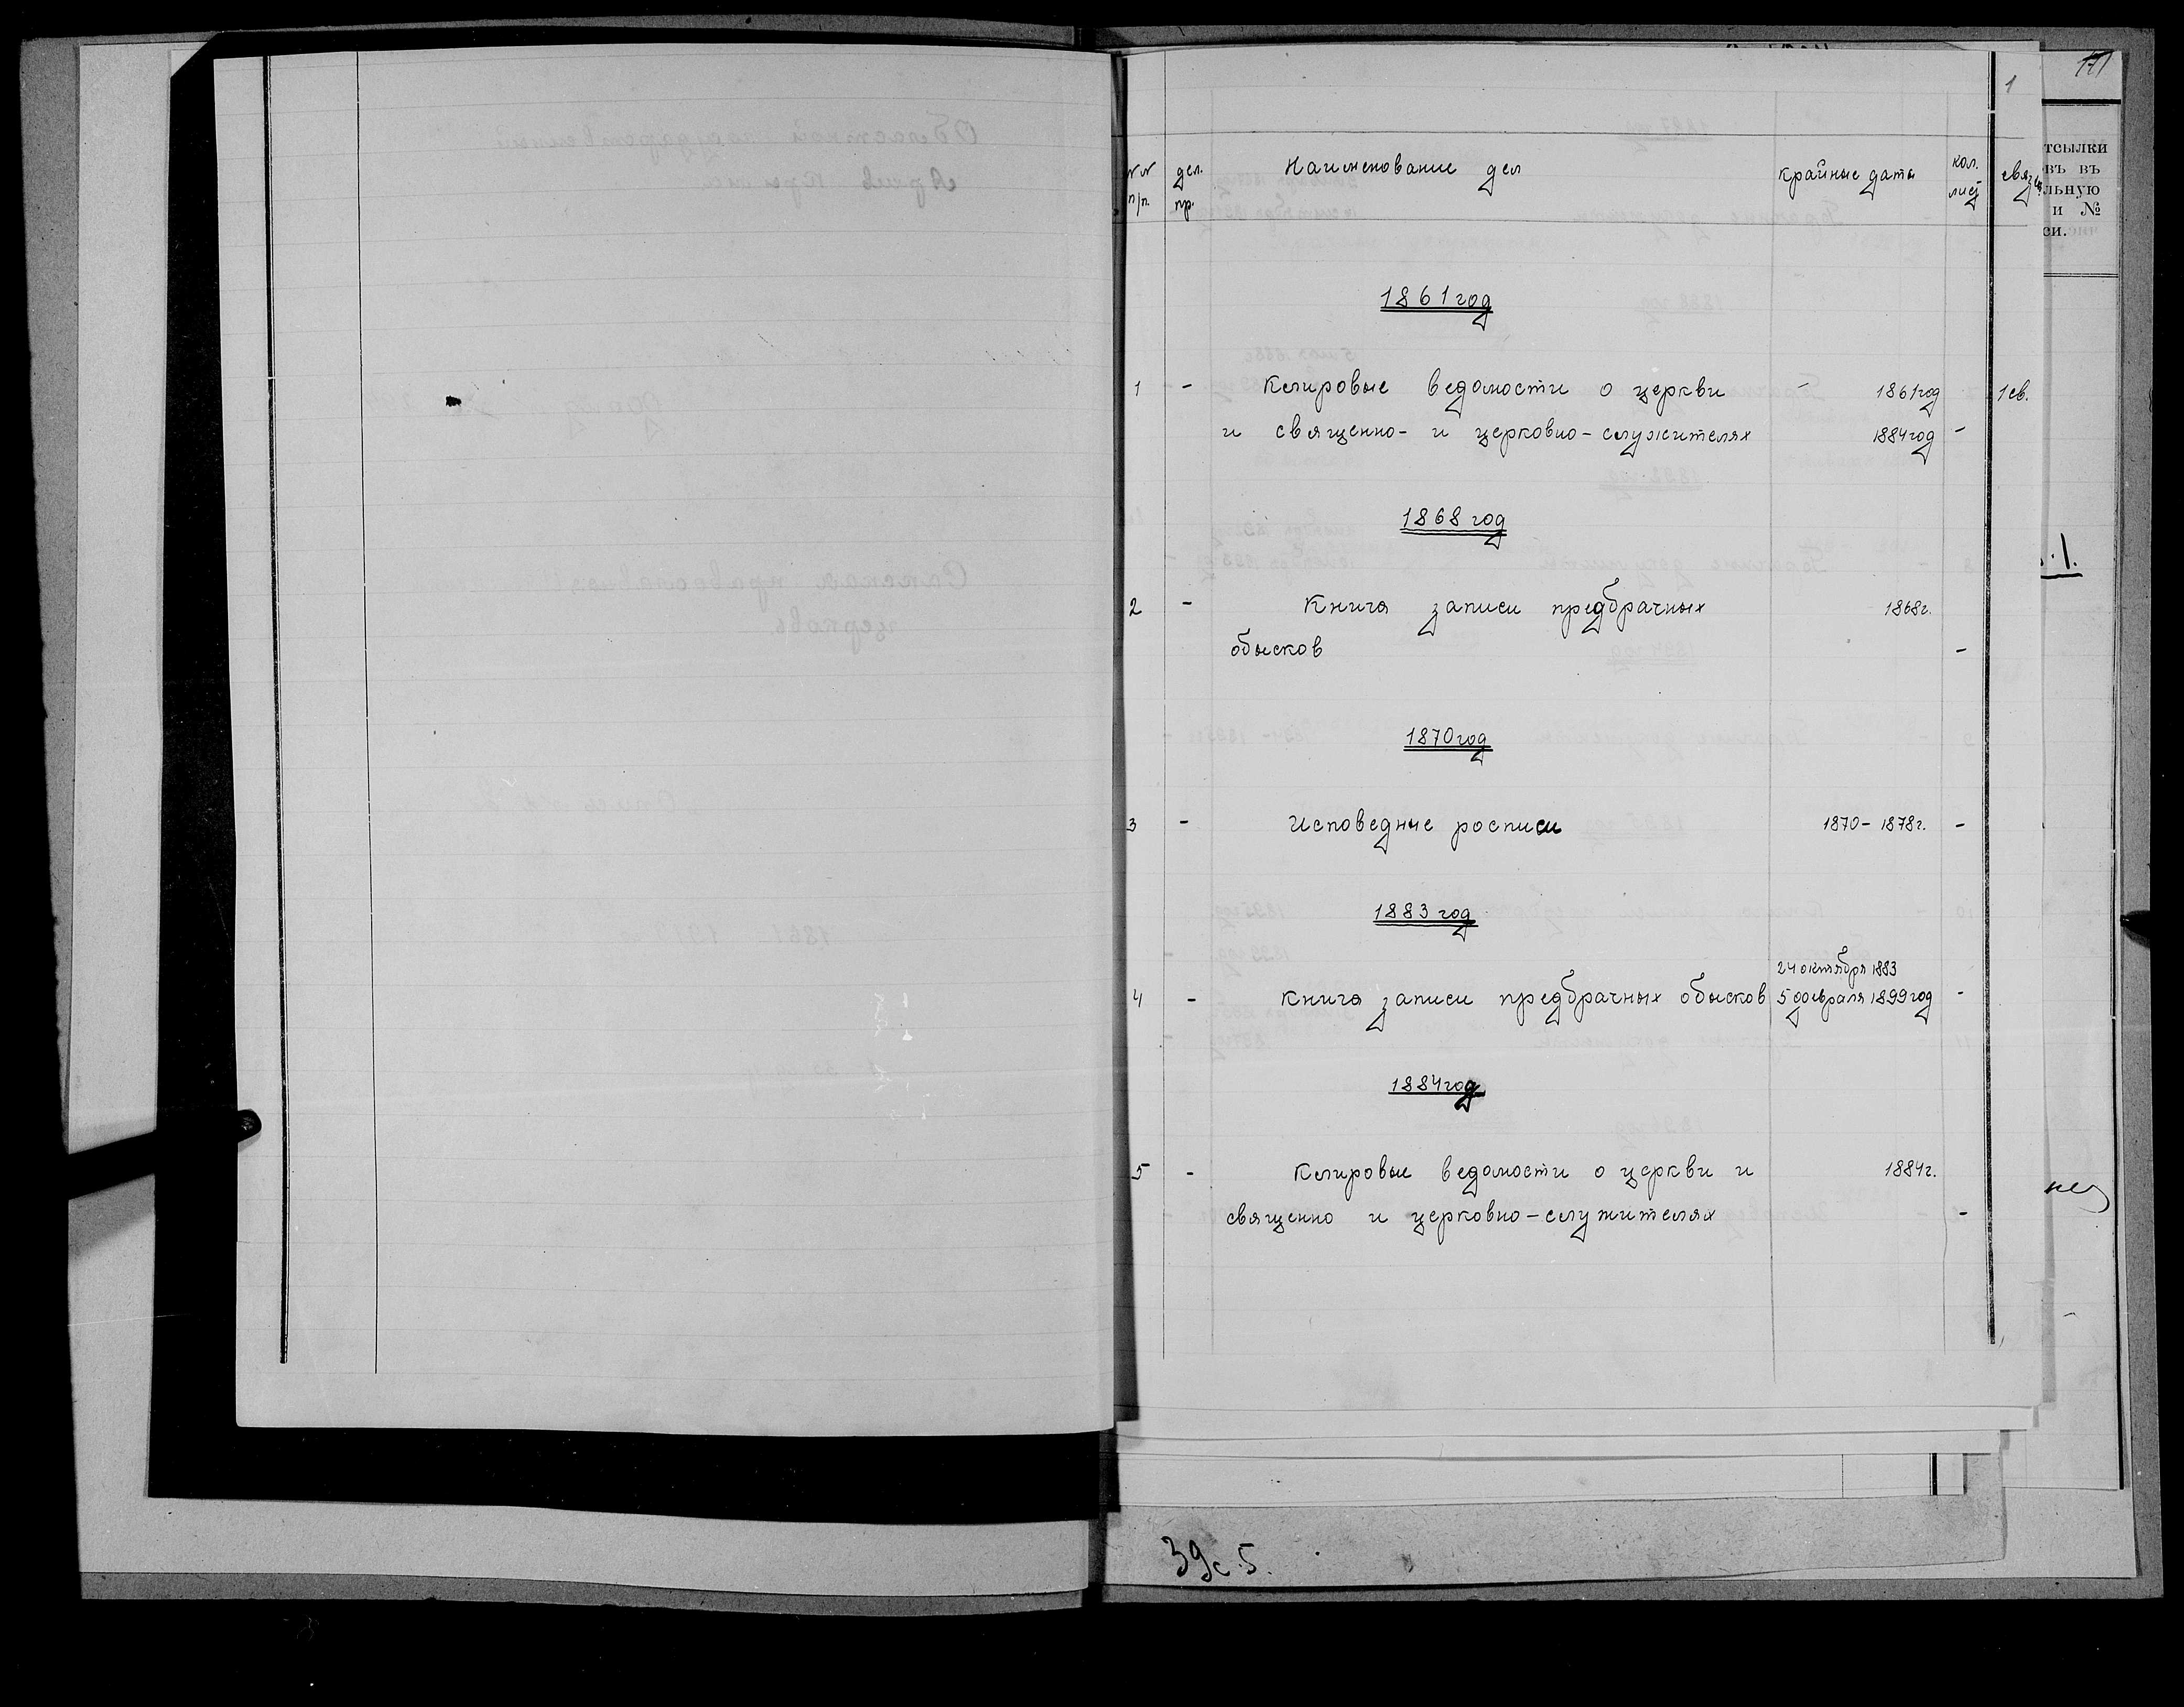 1
№№ п/п. дел. пр. Наименование дел крайные даты кол. лист связи
1861 год
1 - Клировые ведомости о церкви - 1861 год 1 св.
и священно- и церковно-служителях 1884 год -
1868 год
2 - Книга записи предбрачных 1868 г.
обысков -
1870 год
3 - Исповедные росписи 1870 - 1878 г. -
1883 год
24 октября 1883
4 - Книга записи предбрачных обысков 5 февраля 1899 год -
1884 год
5 - Клировые ведомости о церкви и 1884 г.
священно и церковно-служителях -
тсылки
въ въ
льную
и №
си.
39с.5.